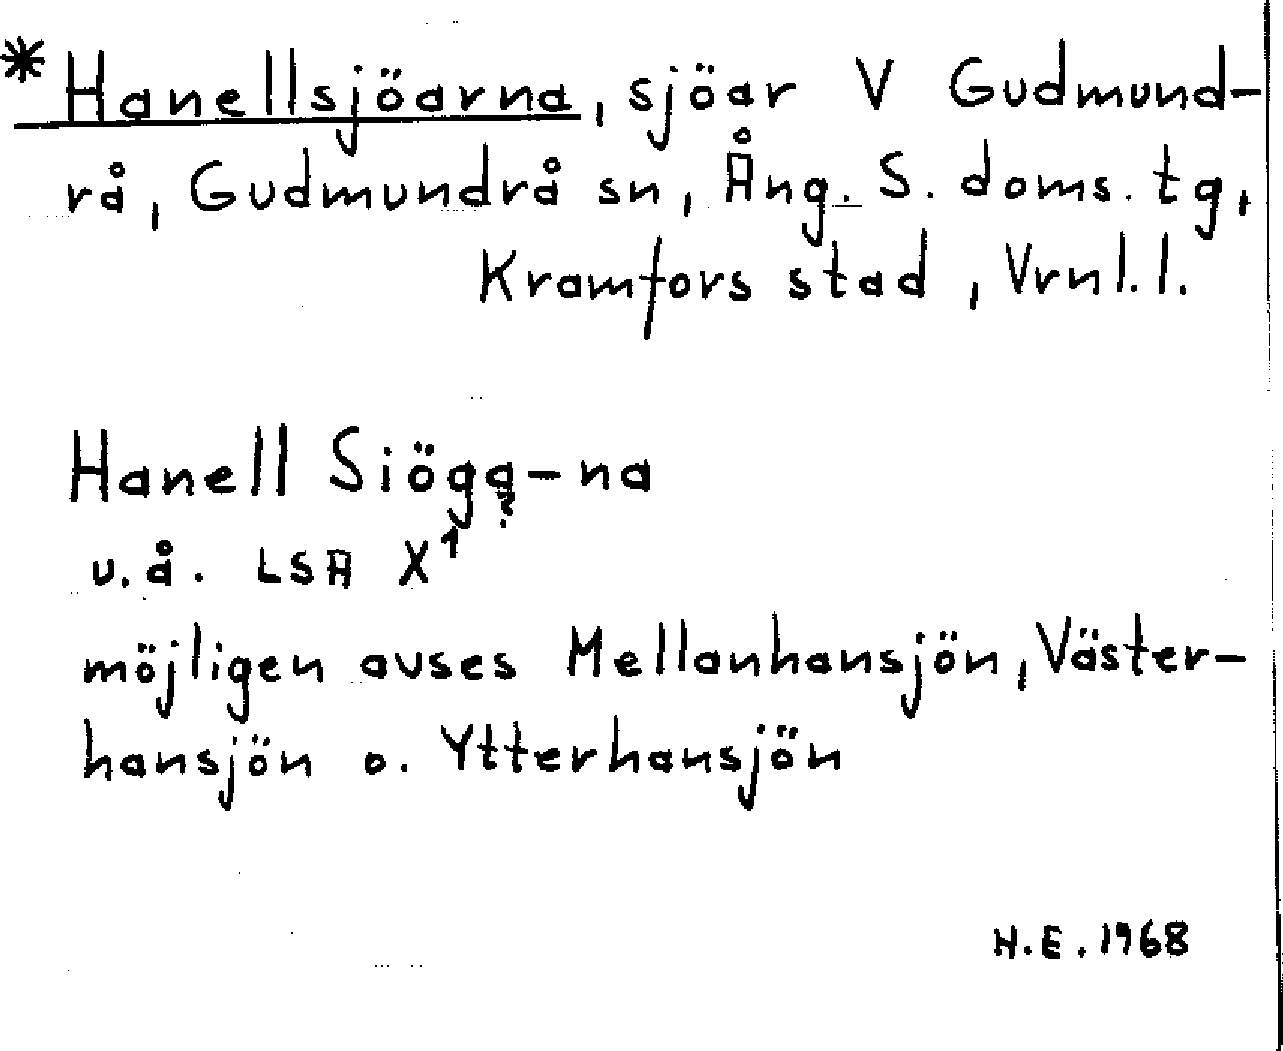 * Hanellsjöarna, sjöar V Gudmund-
rå, Gudmundrå sn, Ång. S. doms. tg,
Kramfors stad, Vrnl. l.
Hanell Siögg-na
?
u.å. LSA X¹
möjligen avses Mellanhansjön, Väster-
hansjön o. Ytterhansjön
H.E. 1968